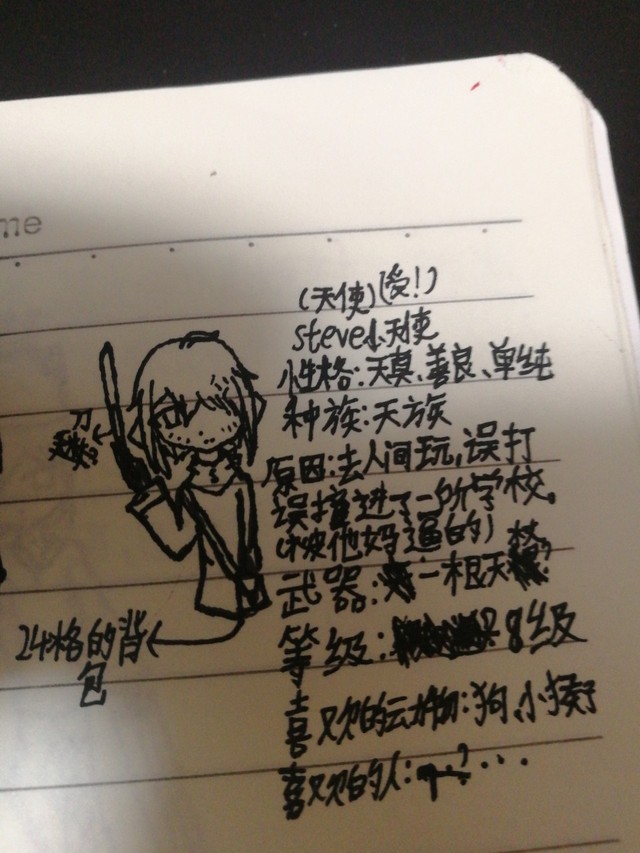 me
(天使)(受!)
steve小天使
性格:天真、善良、单纯
种族:天族
原因:去人间玩,误打
误撞进了一所学校。
(被他妈逼的)
武器:一根天
等级:8级
喜欢的动物:狗、小猴子
喜欢的人:?...
刀
24格的背
包